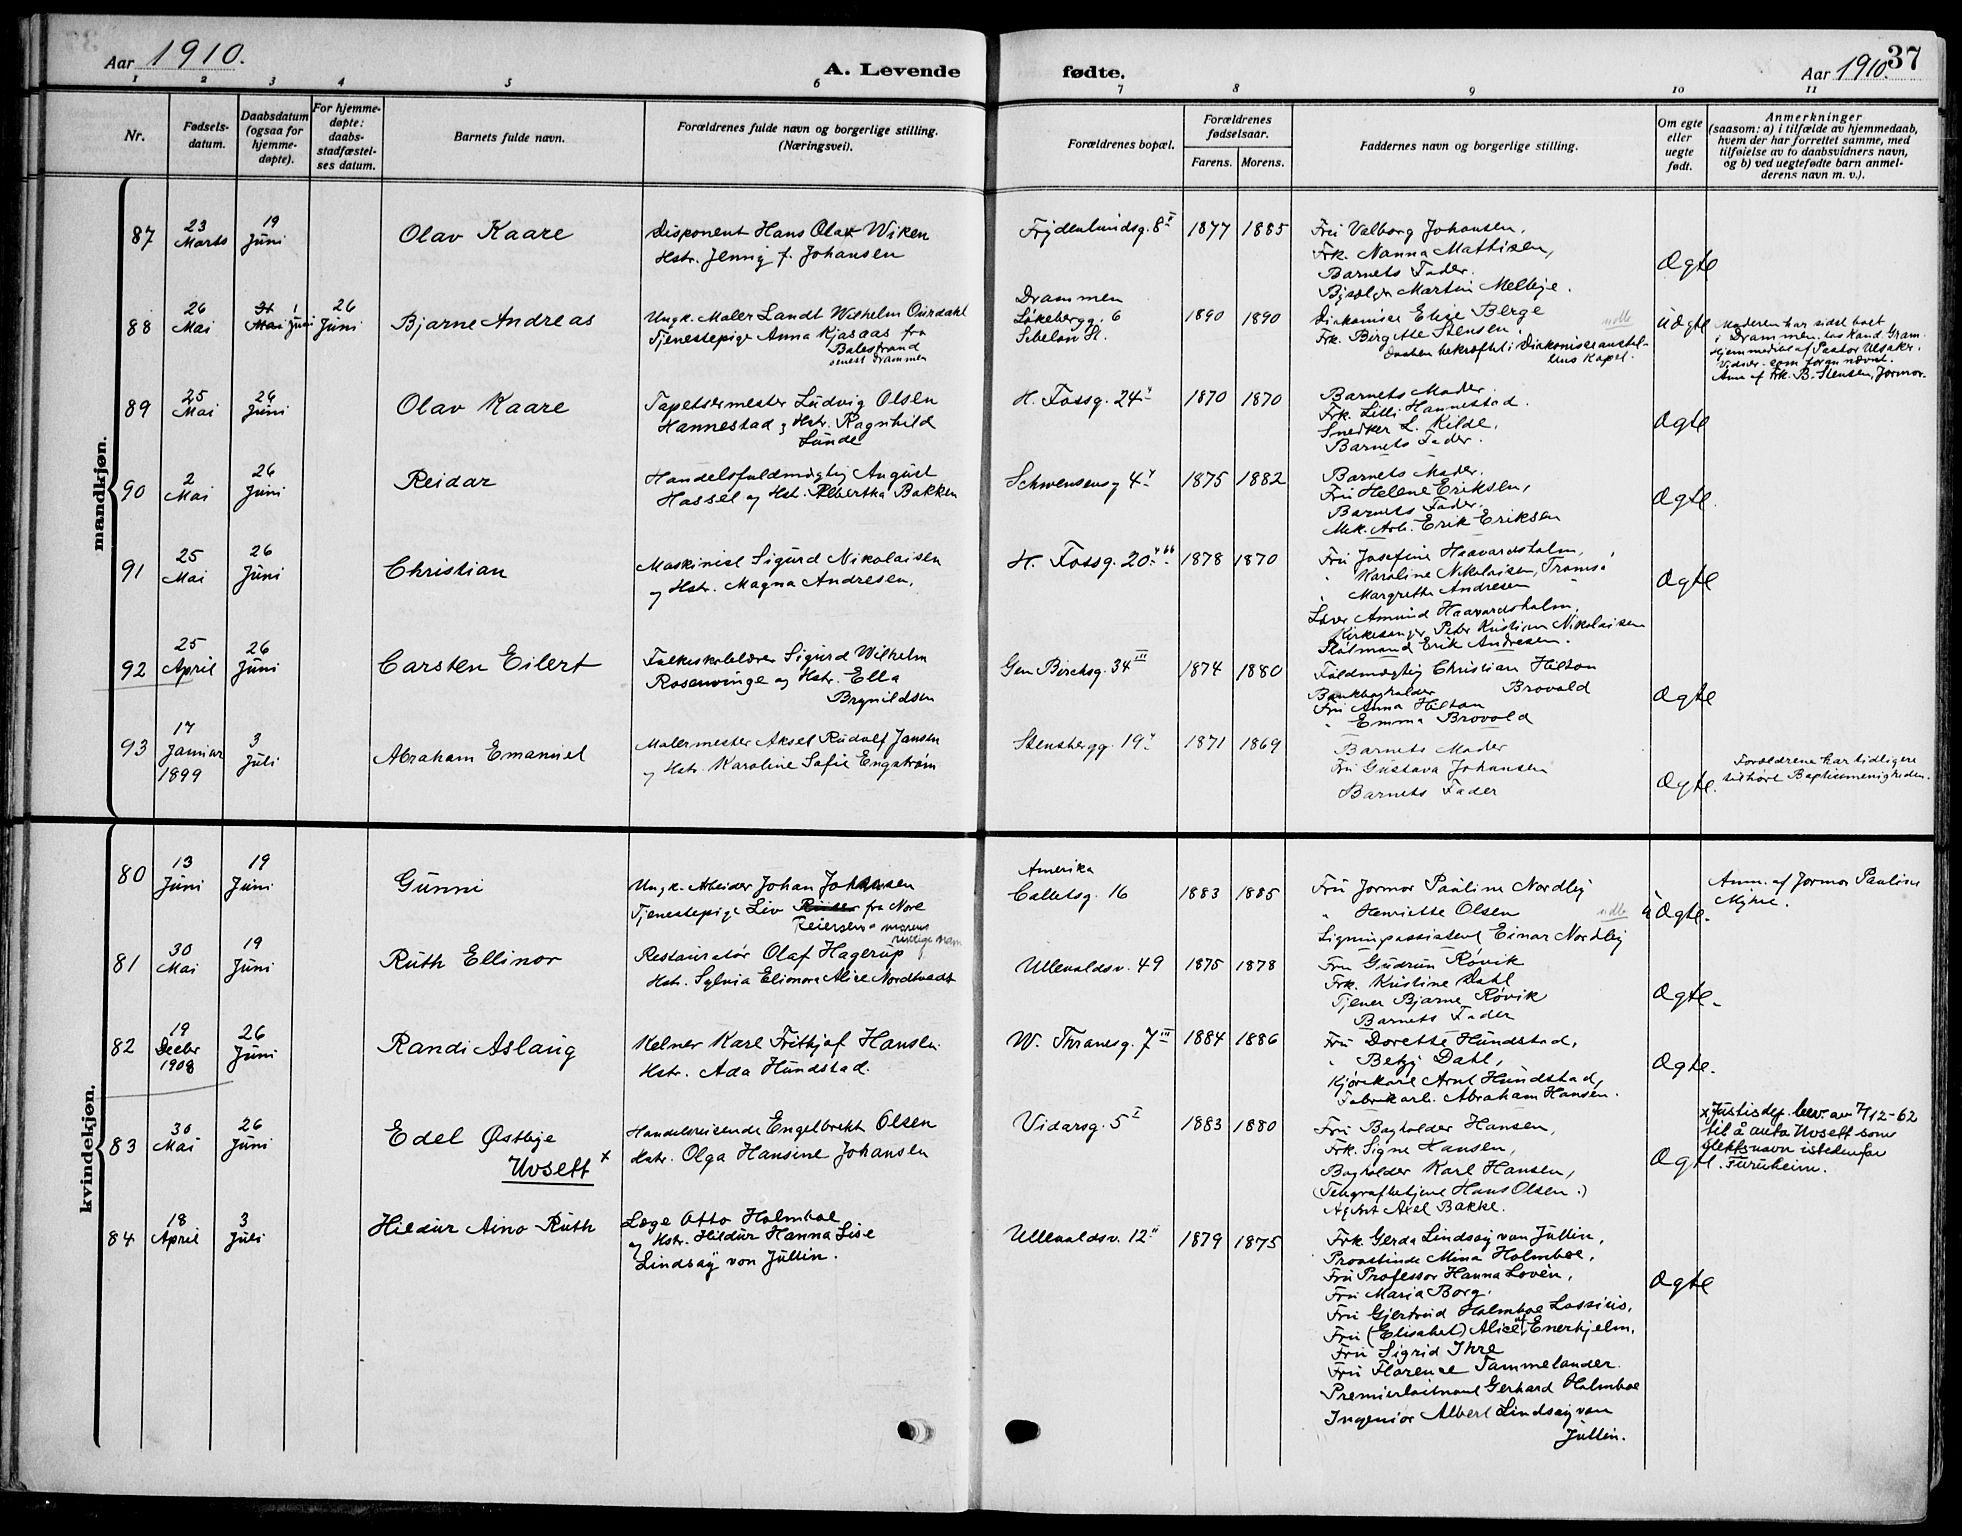 Aar 1910.
A. Levende
fødte.
Aar 1910.
37
1 2 3 4 5 6 7 8 9 10 11
Nr.
Fødsels-
datum.
Daabsdatum
(ogsaa for
hjemme-
døpte).
For hjemme-
døpte:
daabs-
stadfæstel-
ses datum.
Barnets fulde navn.
Forældrenes fulde navn og borgerlige stilling.
(Næringsvei).
Forældrenes bopæl.
Forældrenes
fødselsaar.
Farens. Morens.
Faddernes navn og borgerlige stilling.
Om egte
eller
uegte
født.
Anmerkninger
(saasom: a) i tilfælde av hjemmedaab,
hvem der har forrettet samme, med
tilføielse av to daabsvidners navn,
og b) ved uegtefødte barn anmel-
derens navn m. v.).
mandkjøn.
87
23
Marts
19
Juni
Olav Kaare
Disponent Hans Olaf Wiken
Hstr. Jenny f. Johansen
Frydenlundsg. 8 I
1877 1885
Fru Valborg Johansen,
Frk. Nanna Mathisen,
Barnets Fader.
Martin Melbye.
Ægte
88
26
Mai
1
Juni
26
Juni
Bjarne Andreas
Ungk. Maler Landt Wilhelm Ourdahl
Tjenestepige Anna Kjasaas fra
Balestrand
senest Drammen
Drammen
Løkebergg. 6
1890 1890
Diakonisse Elise Berge
Frk. Birgitte Stensen.
Daaben bekræftet i Diakonisseanstal-
tens Kapel.
udb
uægte
Moderen har sidst boet
i Drammen hos Kand. Gram
Hjemmedøbt af Pastor Ulsaker.
Vidner som foran nævnt.
Anm. af Frk. B. Stensen, Jormor.
89
25
Mai
26
Juni
Olav Kaare
Tapetsermester Ludvig Olsen
Hannestad og Hstr. Ragnhild
Lunde
H. Fossg. 24
1870 1870
Barnets Moder.
Frk. Lilli Hannestad.
Snedker L. Kilde,
Barnets Fader.
Ægte
90
2
Mai
26
Juni
Reidar
Handelsfuldmægtig August
Hassel og Hst. Albertha Bakken
Schwensensg 4
1875 1882
Barnets Moder.
Fru Helene Eriksen,
Barnets Fader.
Mek. Arb. Erik Eriksen
Ægte.
91
25
Mai
26
Juni
Christian
Maskinist Sigurd Nikolaisen
og Hstr. Magna Andresen.
H. Fossg. 20
1878 1870
Fru Josefine Haavardsholm,
" Karoline Nikolaisen, Tromsø
" Margrethe Andresen
Lærer Amund Haavardsholm,
Kirkesanger Peter Kristian Nikolaisen
Styrmand Erik Andresen.
Ægte
92
25
April
26
Juni
Carsten Eilert
Folkeskolelærer Sigurd Wilhelm
Rosenvinge og Hstr. Ella
Brynildsen
Gen Birchsg. 34 III
1874 1880
Fuldmægtig Christian Hilton
Bankbogholder Brovold
Fru Anna Hilton
" Emma Brovold
Ægte
93
17
Januar
1899
3
Juli
Abraham Emanuel
Malermester Aksel Rudolf Jansen
og Hstr. Karoline Sofie Engstrøm
Stensbergg. 19
1871 1869
Barnets Moder
Fru Gustava Johansen
Barnets Fader
Ægte.
Forældrene har tidligere
tilhørt Baptistmenigheden.
kvindekjøn.
80
13
Juni
19
Juni
Gunni
Ungk. Arbeider Johan Johansen
Tjenestepige Liv fra Nore
Reiersen = morens
rettige navn
Amerika
Colletsg. 16
1883 1885
Fru Jormor Pauline Nordlij
" Henriette Olsen
Signingsassistent Einar Nordlij
udb
u Ægte.
Anm. af Jormor Pauline
81
30
Mai
19
Juni
Ruth Ellinor
Restauratør Olaf Hagerup
Hstr. Sylvia Elionora Alice Nordtvedt
Ullevaldsv. 49
1875 1878
Fru Gudrun Røvik
Frk. Kristine Dahl
Tjener Bjarne Røvik
Barnets Fader
Ægte.
82
19
Decbr
1908
26
Juni
Randi Aslaug
Kelner Karl Frithjof Hansen
Hstr. Ada Hundstad.
W. Thranesg. 7 III
1884 1886
Fru Dorette Hundstad,
" Betzy Dahl,
Kjørekarl Arnt Hundstad,
Fabrikarb. Abraham Hansen.
Ægte.
83
30
Mai
26
Juni
Edel Østbye
Uvsett x
Handelsreisende Engelbrekt Olsen
Hstr. Olga Hansine Johansen
Vidarsg. 5 I
1883 1880
Fru Bogholder Hansen,
Frk. Signe Hansen,
Bogholder Karl Hansen,
(Telegrafbetjent Hans Olsen.)
Agent Axel Bakke.
Ægte.
x Justisdep. bev. av 7/12-62
til å anta Uvsett som
slektsnavn istedenfor
Furuheim.
84
18
April
3
Juli
Hildur Aino Ruth
Læge Otto Holmboe
og Hstr. Hildur Hanna Lise
Lindsay von Julin.
Ullevaldsv. 12
1879 1875
Frk. Gerda Lindsay von Jullin,
Provstinde Mina Holmboe,
Fru Professor Hanna Lovén,
Fru Maria Borg.
Fru Gjertrud Holmboe Lassisis,
Fru (Elisabet) Alice af Enerhjelm.
Fru Sigrid Ihre
Fru Florence Tammelander.
Premierløitnant Gerhard Holmboe
Ingeniør Albert Lindsay von
Jullin.
Ægte